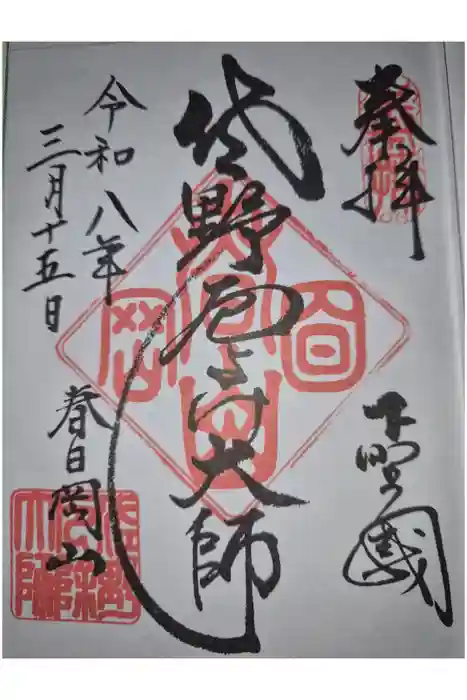 奉拝
下野國
佐野厄よけ大師
令和八年
三月十五日
春日岡山